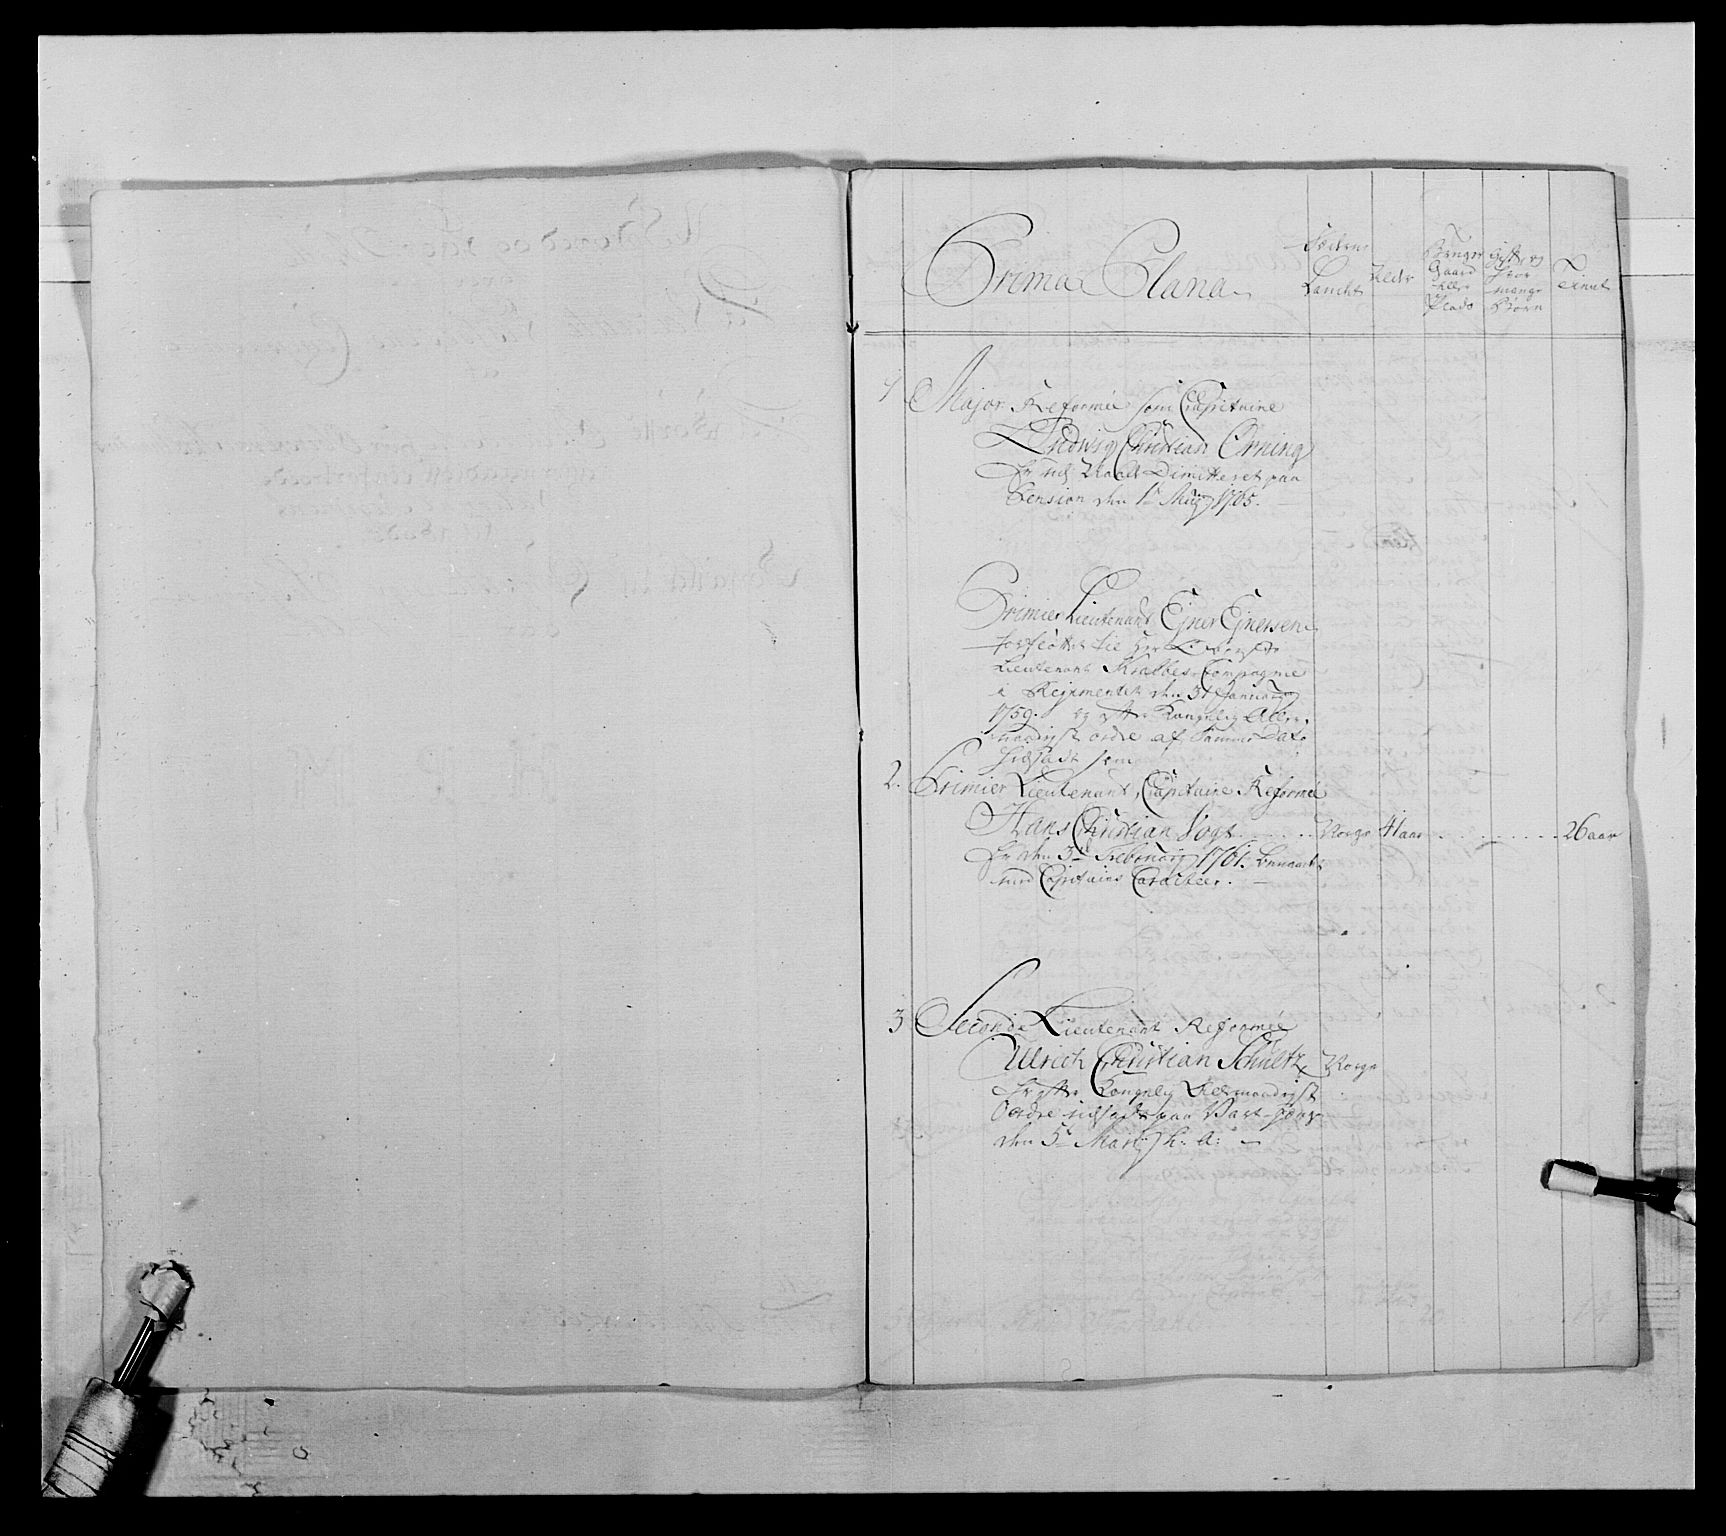 Prima Plana
Fødene
Landet
Alder
Bruger
Gaard
eller
Plads
Gift, og
hvor
mange
Børn
Tient
1 Major Reformée som Capitaine
Ludwig Christian Orning
Er udj Naade Dimitteret paa
Pension den 1te Maij 1765.
Premier Lieutenant Ejner Ejnersen
forflöttet til Herr Oberste
Lieutenant Kralbes Compagnie
i Regimentet den 31 January
1759. og efter Kongelig Aller-
naadigst ordre af samme Dato
hidsadt som
2. Premier Lieutenant, Capitaine Reformé
Hans Christian Vogt Norge 41 aar 26 aar
Er den 3die Februarij 1761. benaadet
med Capitains Caracteer.
3 Seconde Lieutenant Reformée
Ulrich Christian Schultz Norge
Er efter Kongelig Allernaadigst
Ordre udsadt paa Vart-penge
den 5te Martij h: a: